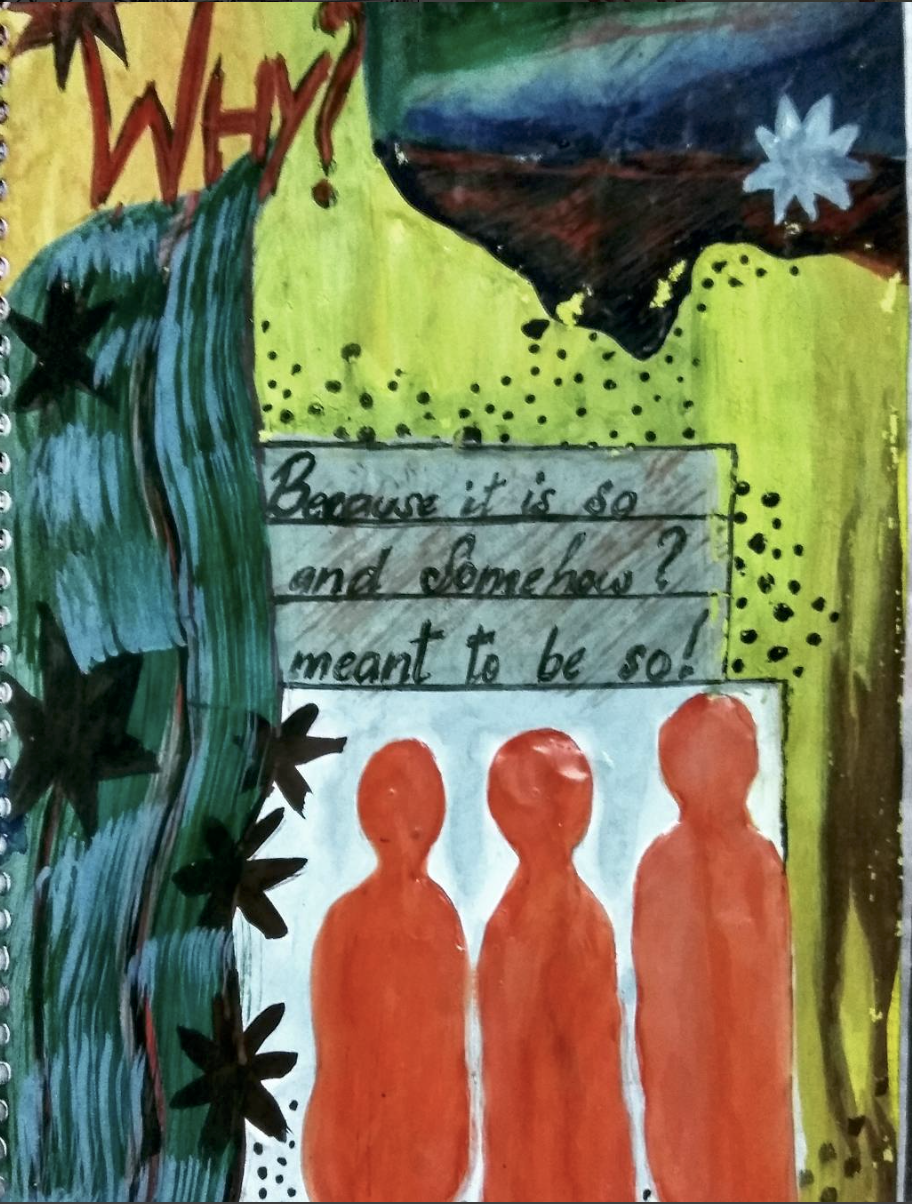 WHY?
Because it is so
and Somehow?
meant to be so!